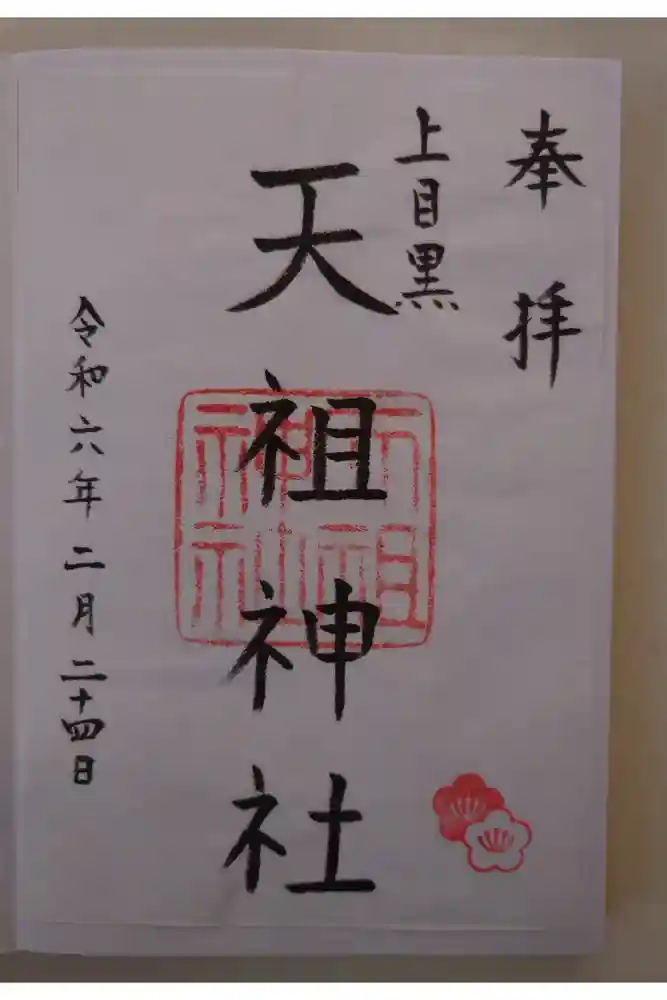 奉拝
上目黒
天祖神社
天祖
神社
令和六年二月二十四日